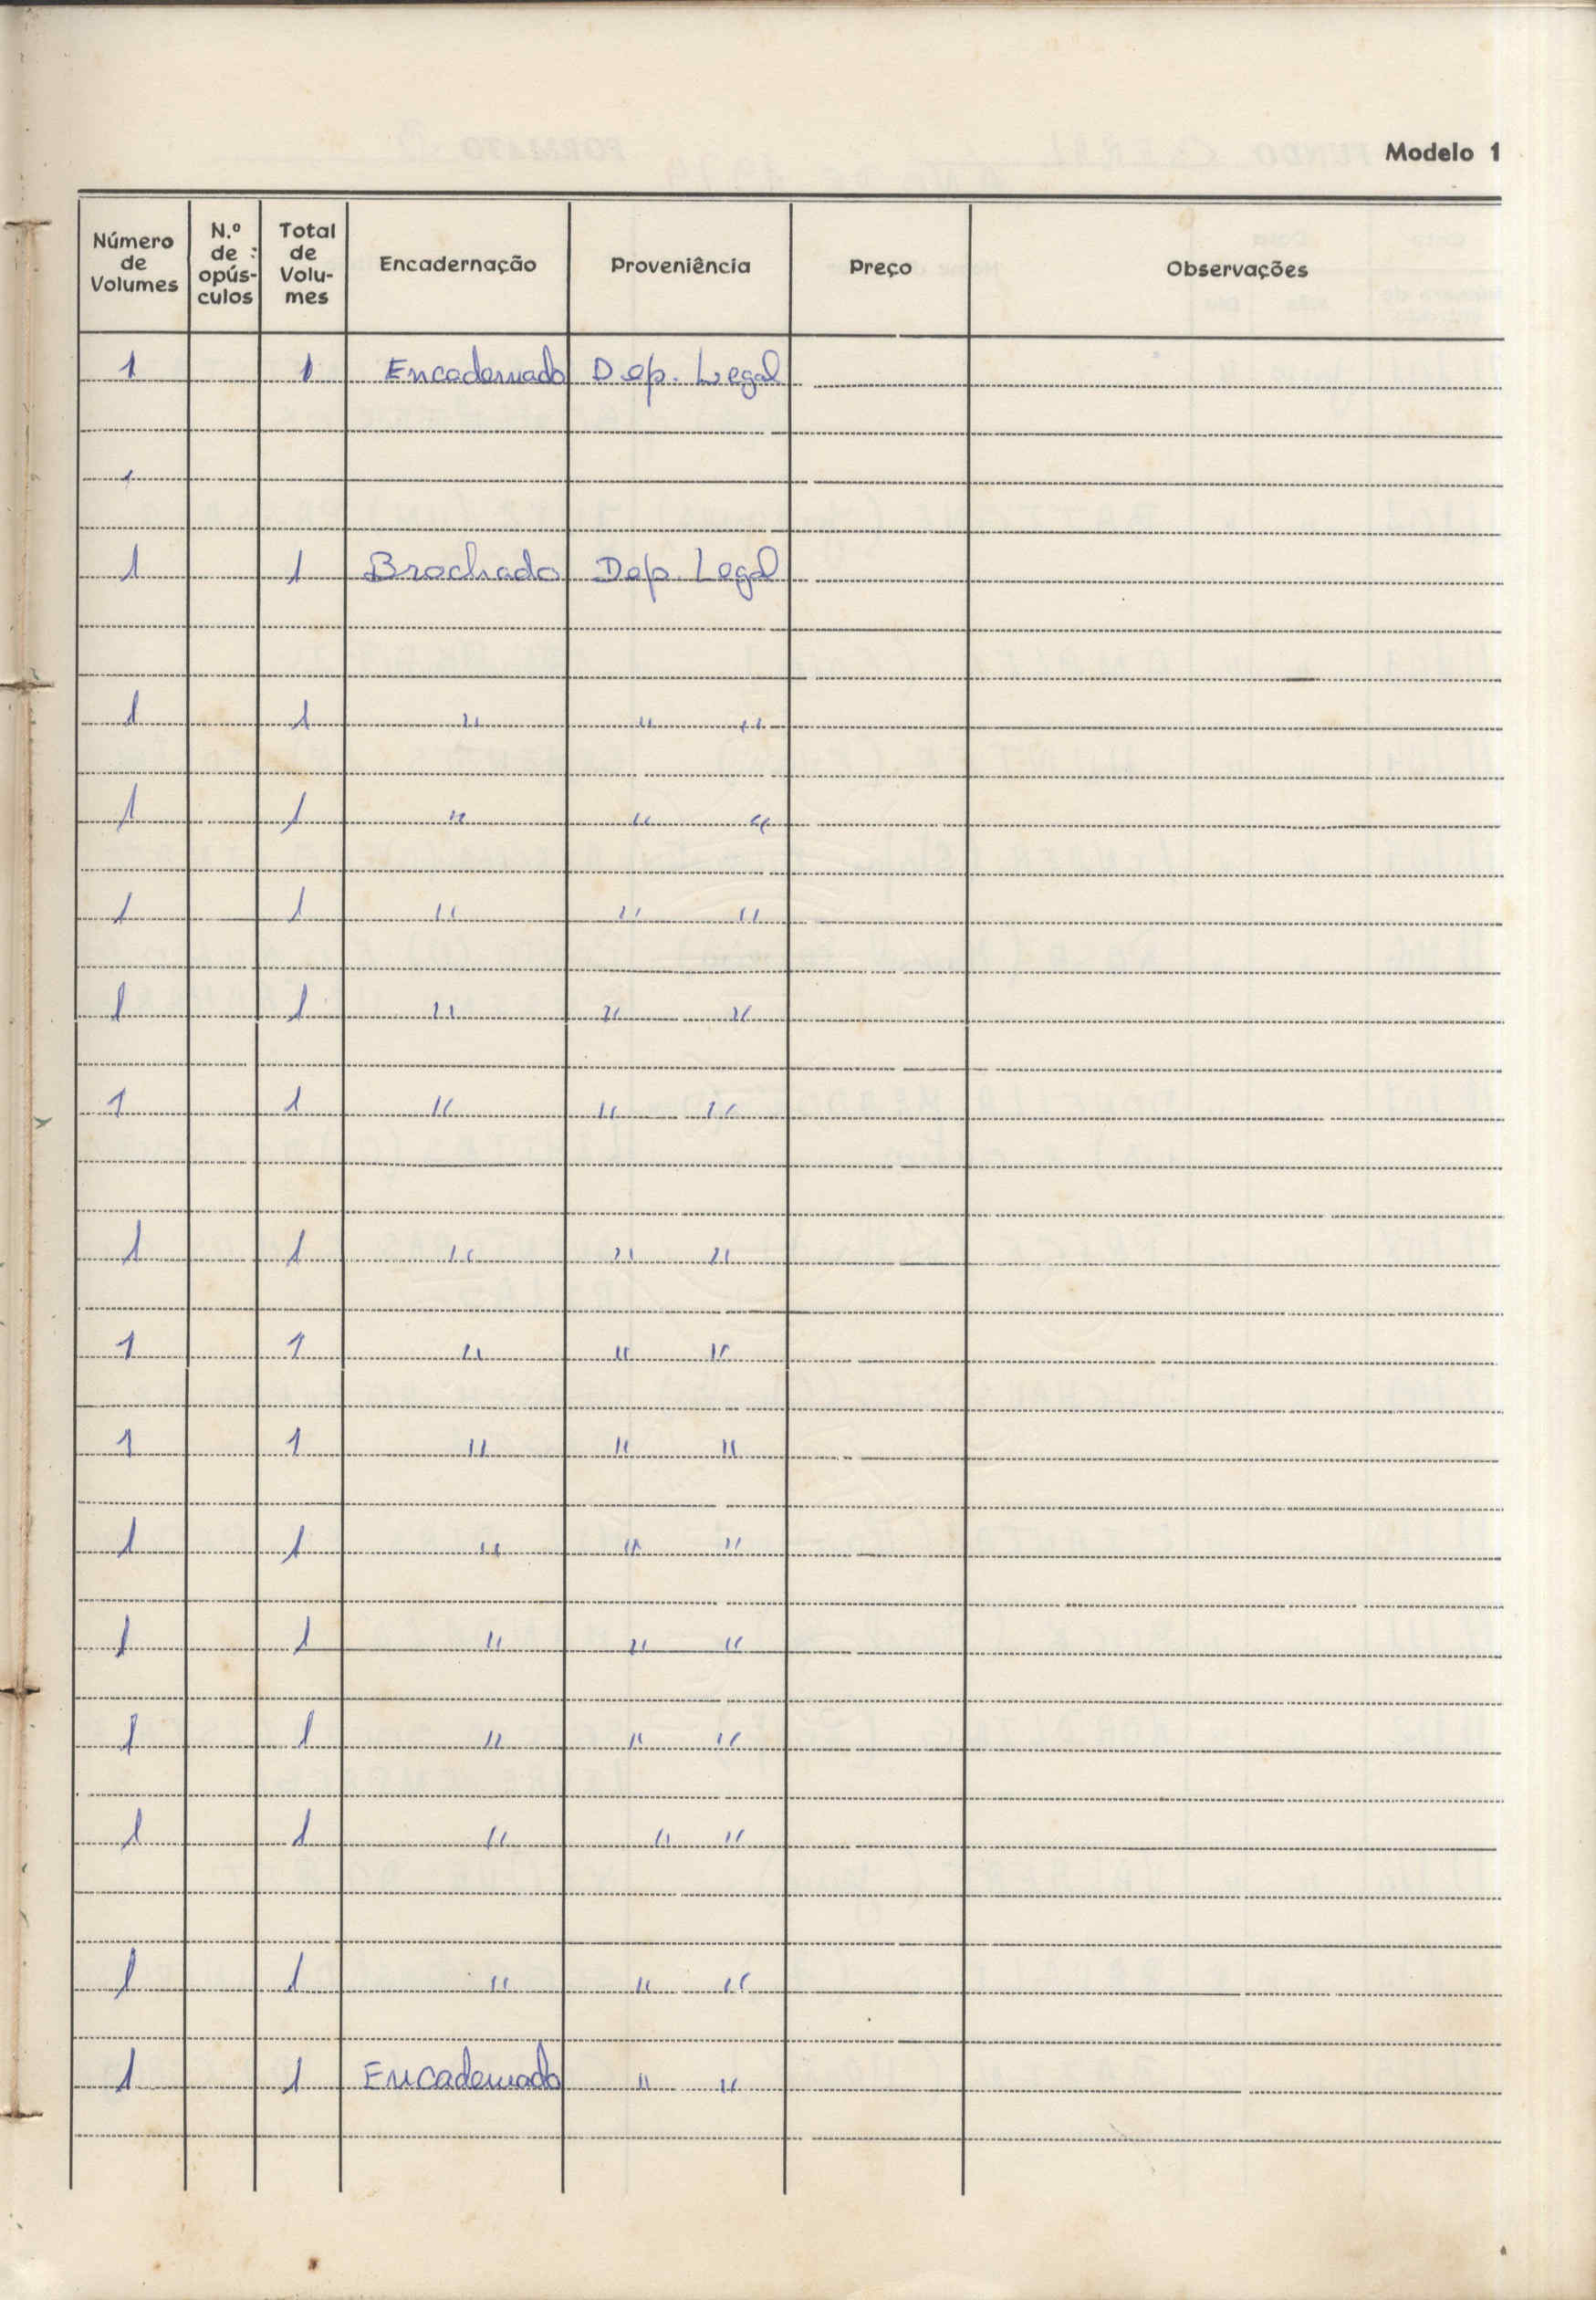 Modelo 1
Número de Volumes N.º de opúsculos Total de Volumes Encadernação Proveniência Preço Observações
1 1 Encadernado Dep. Legal
1 1 Brochado Dep. Legal
1 1 " " "
1 1 " " "
1 1 " " "
1 1 " " "
1 1 " " "
1 1 " " "
1 1 " " "
1 1 " " "
1 1 " " "
1 1 " " "
1 1 " " "
1 1 " " "
1 1 " " "
1 1 Encadernado " "